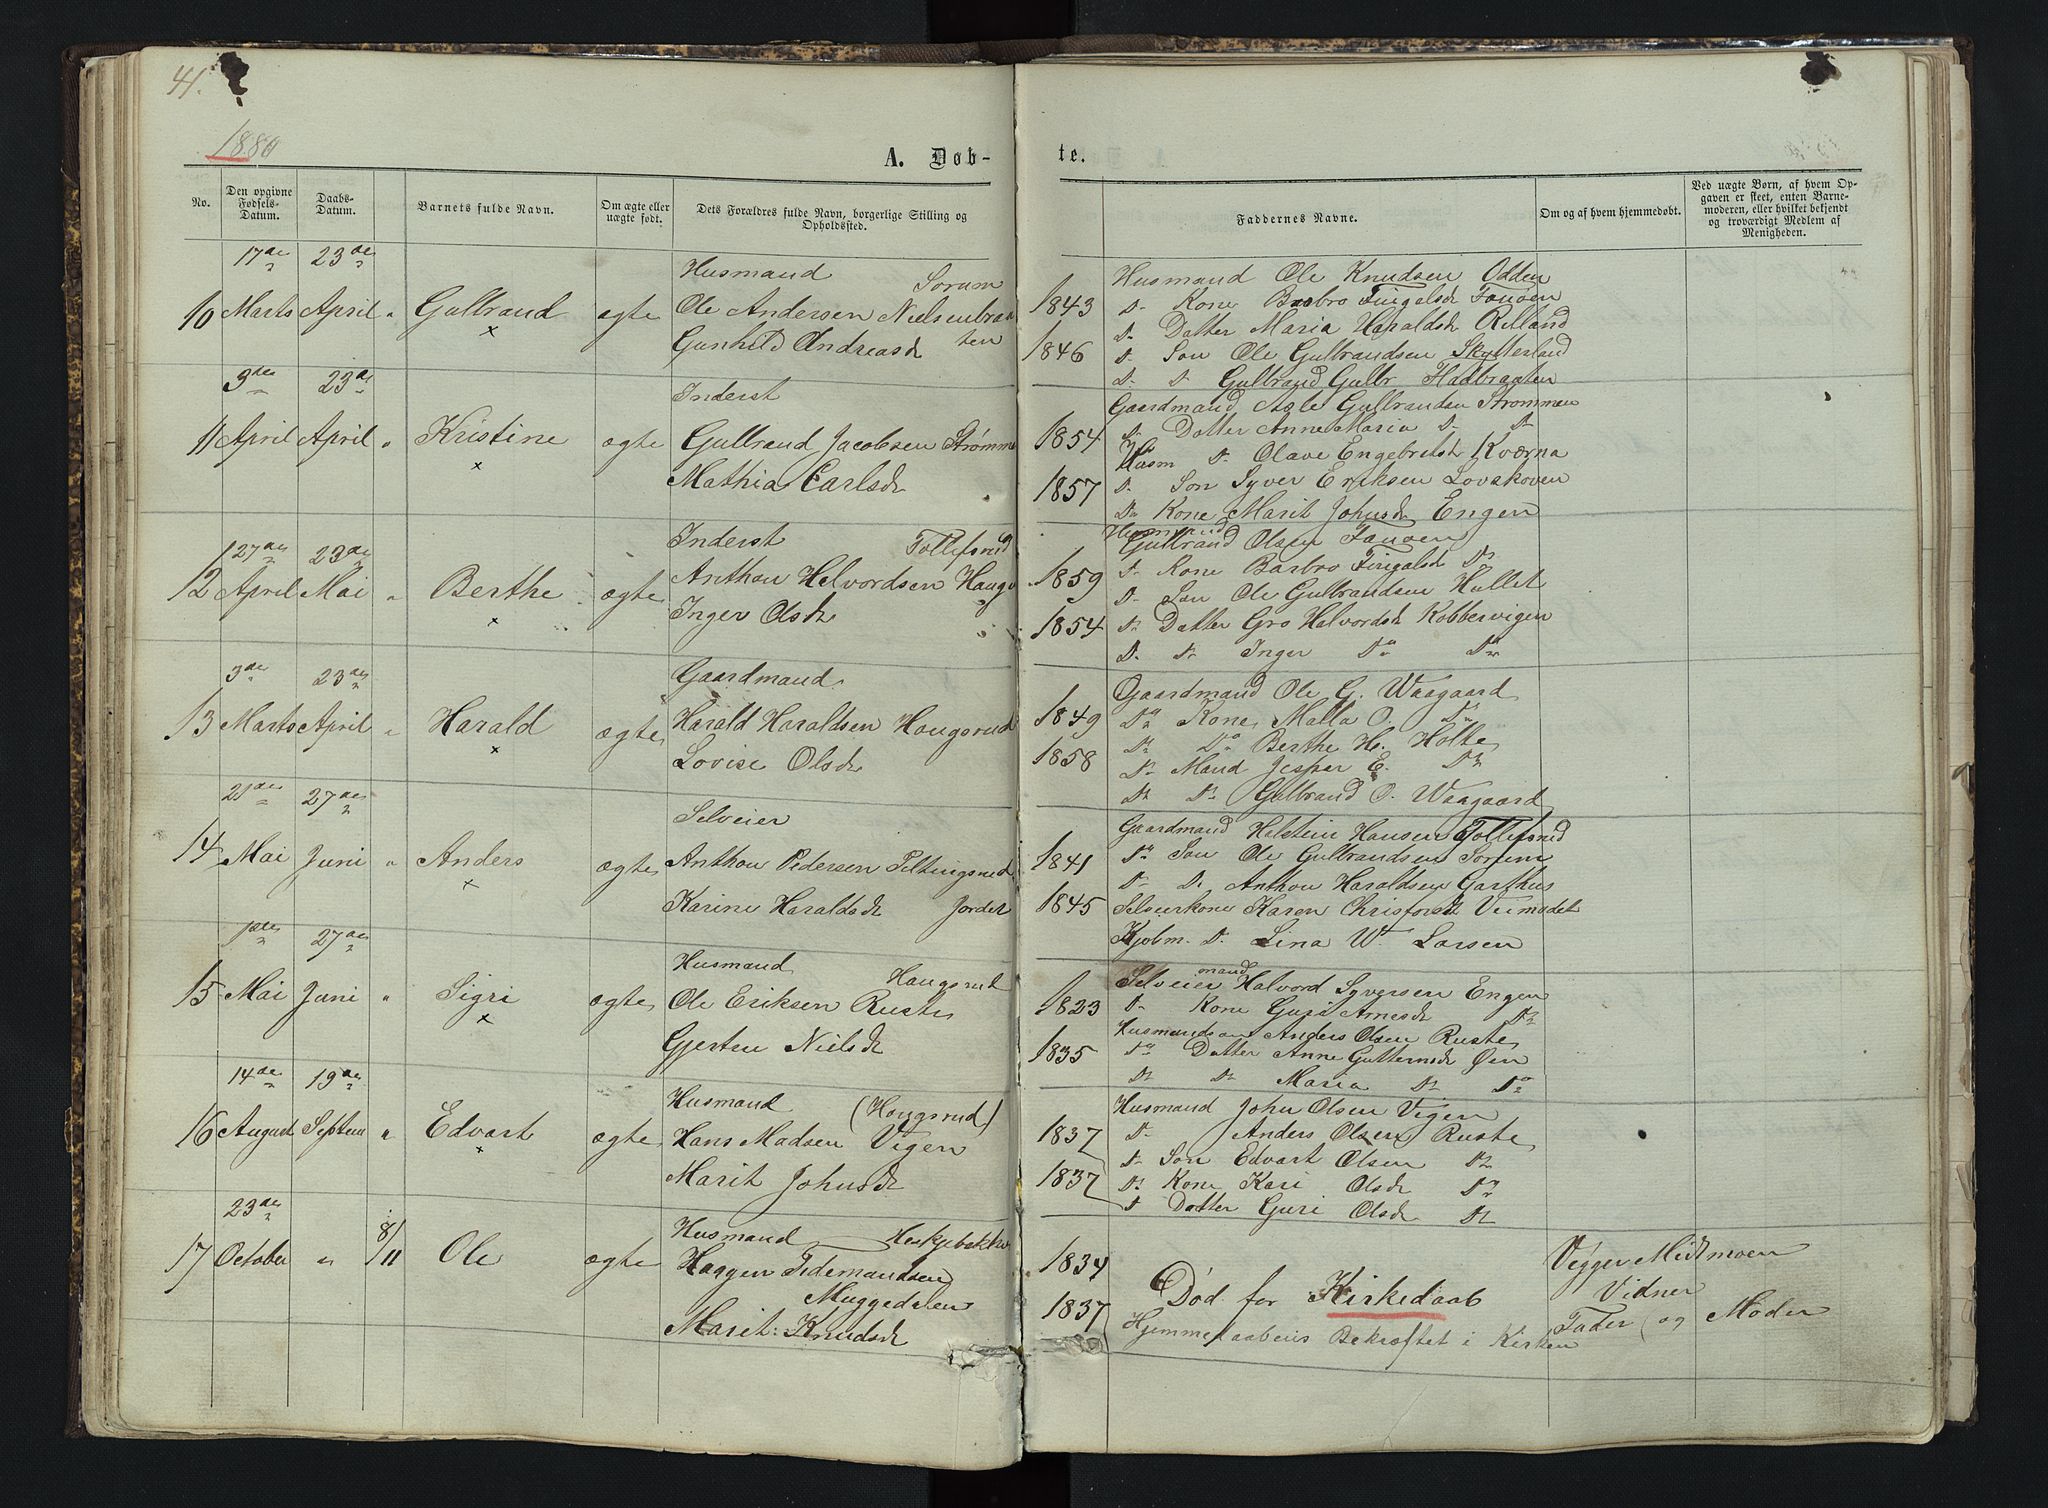 41.
1880
A. Døb-
te.
No.
Den opgivne Fødsels-Datum.
Daabs-Datum.
Barnets fulde Navn.
Om ægte eller uægte født.
Dets Forældres fulde Navn, borgerlige Stilling og Opholdssted.
Faddernes Navne.
Om og af hvem hjemmedøbt.
Ved uægte Børn, af hvem Opgaven er skeet, enten Barnemoderen, eller hvilket bekjendt og troværdigt Medlem af Menigheden.
17de 23de
Husmand Sorum
10 Marts April " Gulbrand ægte Ole Andersen Nielsenbraa
ten
Gunhild Andreasd
1843
1846
Husmand Ole Knudsen Odden
Do Kone Barbro Fingalsd
Do Datter Maria Haraldsd
Do Søn Ole Gulbrandsen
Do Do Gulbrand Gulbr
3die 23de
Inderst
11 April April " Kristine ægte Gulbrand Jacobsen Strømme
Mathia Carlsd
1854
1857
Gaardmand Asle Gulbrandsen Strømmen
Do Datter Anne Maria Do Do
Husm Do Olave Engebretsd Kværna
Do Søn Syver Eriksen Lovskoven
Do Kone Marit Johnsd Engen
27de 23de
Inderst Tollefsrud
12 April Mai " Berthe ægte Anthon Helvordsen Haugs
Inger Olsd
1859
1854
Husmand
Gulbrand Olsen
Do Kone Barbro Fingalsd Do
Do Søn Ole Gulbrandsen Hullet
Do Datter Gro Halvordsd Kobbervigen
Do Do Inger Do Do
3de 23de
Gaardmand
13 Marts April " Harald ægte Harald Haraldsen Haugsrud
Lovise Olsd
1849
1858
Gaardmand Ole G. Waagaard
Do Kone Malla O. Do
Do Do Berthe H. Holte
Do Mand Jesper E. Do
Do Do Gulbrand O. Waagaard
21de 27de
Selveier
14 Mai Juni " Anders ægte Anthon Pedersen Teltingsrud
Karine Haraldsd Jordet
1841
1845
Gaardmand Halstein Hansen Tollefsrud
Do Søn Ole Gulbrandsen Sorum
Do Do Anthon Haraldsen Garthus
Selveierkone Karen
Kjøbm. Do Lina W. Larsen
1ste 27de
Husmand Haugsrud
15 Mai Juni " Sigri ægte Ole Eriksen Ruste
Gjertru Nielsd
1823
1835
Selveier mand Halvord Syversen Engen
Do Kone Guri Arnesd Do
Anders Olsen Ruste
Do Datter Anne Guttormsd Øen
Do Do Maria Do Do
14de 19de
Husmand (Haugsrud)
16 August Septem " Edvart ægte Hans Madsen Vigen
Marit Johnsd
1837
1837
Husmand John Olsen Vigen
Do Anders Olsen Ruste
Do Søn Edvart Olsen Do
Do Kone Kari Olsd Do
Do Datter Guri Olsd Do
23de
Husmand
17 October " 8/11 Ole ægte Haagen Tidemandsen
Muggedalen
Marit Knudsd
1834
1837
Død før Kirkedaab
Hjemmedaabens Bekræftet i Kirken
Vegger Midtmoen
Vidner
Fader og Moder